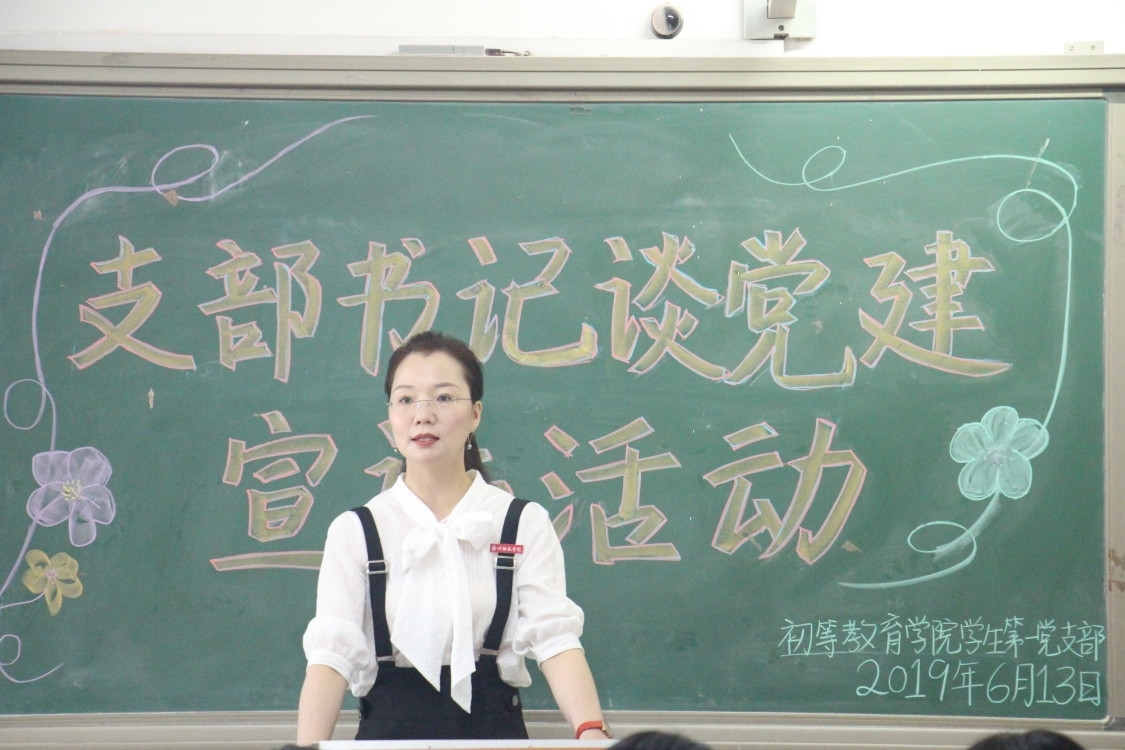 支部书记谈党建
宣 活动
初等教育学院学生第一党支部
2019年6月13日